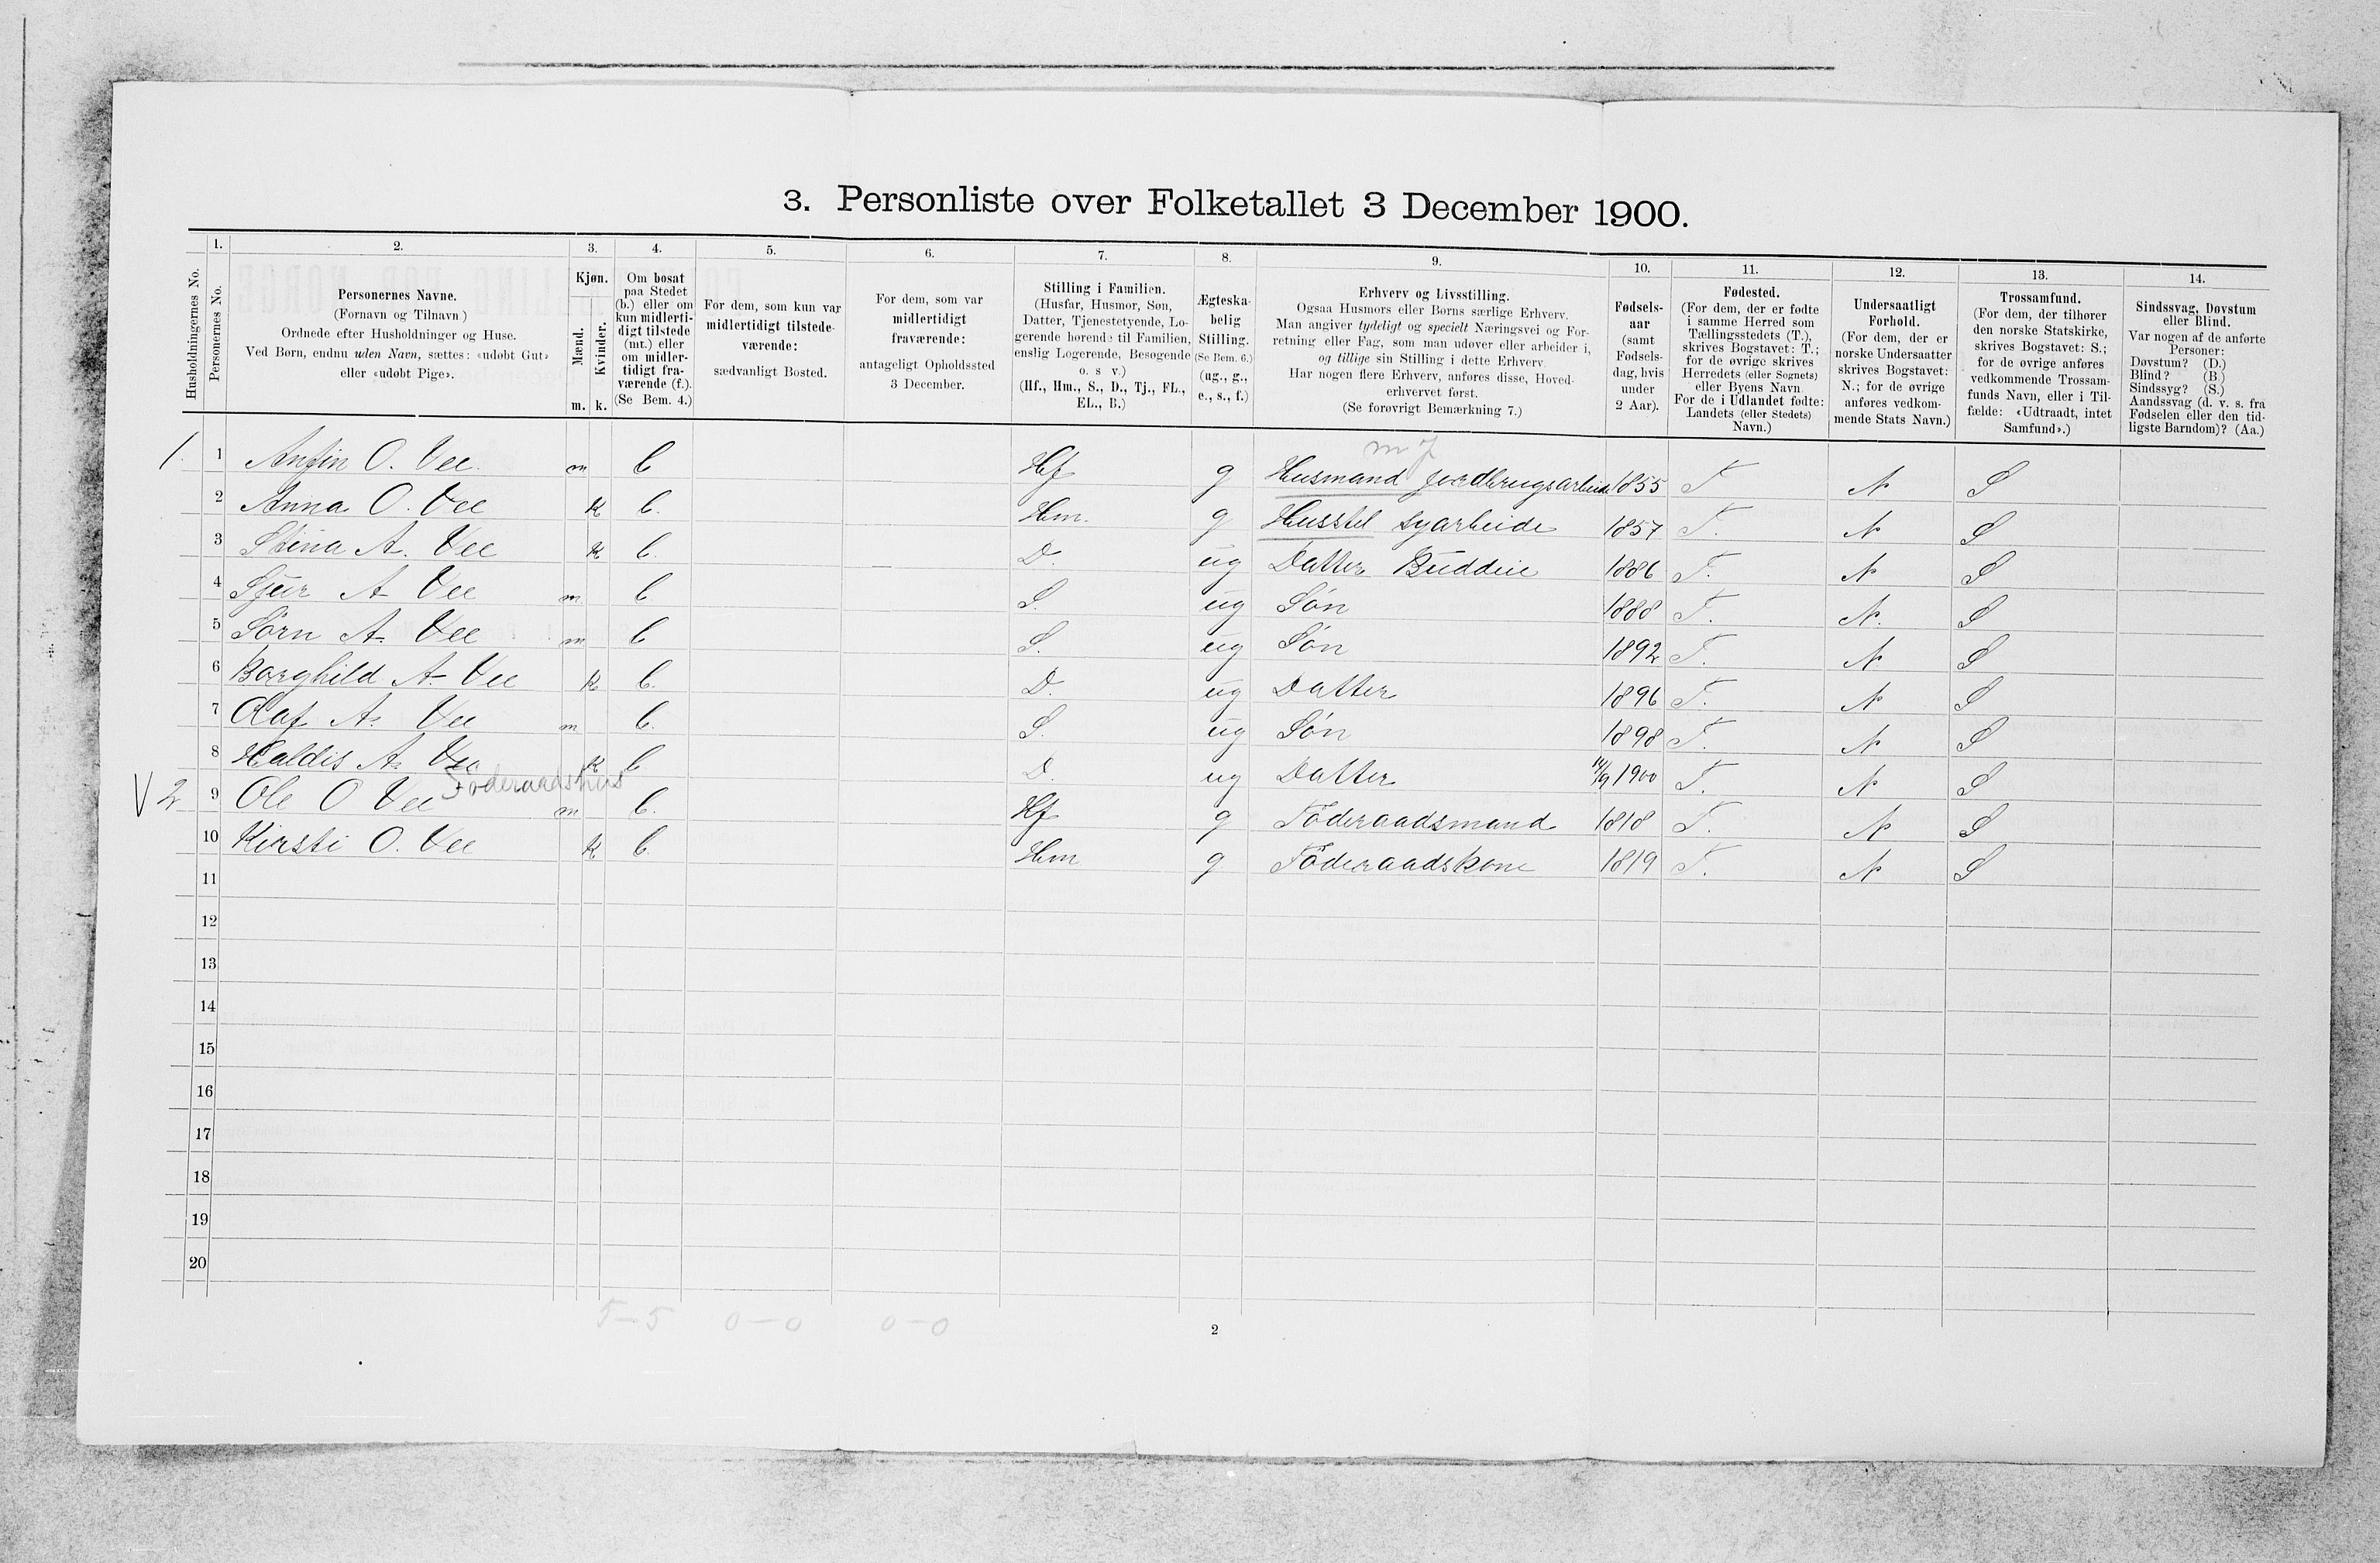 3. Personliste over Folketallet 3 December 1900.
1. 2. 3. 4. 5. 6. 7. 8. 9. 10. 11. 12. 13. 14.
Husholdningernes No.
Personernes No.
Personernes Navne.
(Fornavn og Tilnavn)
Ordnede efter Husholdninger og Huse.
Ved Børn, endnu uden Navn, sættes: «udøbt Gut»
eller «udøbt Pige».
Kjøn.
Mænd.
Kvinder.
m. k.
Om bosat
paa Stedet
(b.) eller om
kun midlerti-
digt tilstede
(mt.) eller
om midler-
tidigt fra-
værende (f.).
(Se Bem. 4.)
For dem, som kun var
midlertidigt tilstede-
værende:
sædvanligt Bosted.
For dem, som var
midlertidigt
fraværende:
antageligt Opholdssted
3 December.
Stilling i Familien.
(Husfar, Husmor, Søn,
Datter, Tjenestetyende, Lo-
gerende hørende til Familien,
enslig Logerende, Besøgende
o. s v.)
(Hf., Hm., S., D., Tj., FL.,
EL., B.)
Ægteska-
belig
Stilling.
(Se Bem. 6.)
(ug., g.,
e., s., f.)
Erhverv og Livsstilling.
Ogsaa Husmors eller Børns særlige Erhverv.
Man angiver tydeligt og specielt Næringsvei og For-
retning eller Fag, som man udøver eller arbeider i,
og tillige sin Stilling i dette Erhverv.
Har nogen flere Erhverv, anføres disse, Hoved-
erhvervet først.
(Se forøvrigt Bemærkning 7.)
Fødsels-
aar
(samt
Fødsels-
dag, hvis
under
2 Aar).
Fødested.
(For dem, der er fødte
i samme Herred som
Tællingsstedets (T.),
skrives Bogstavet: T.;
for de øvrige skrives
Herredets (eller Sognets)
eller Byens Navn
For de i Udlandet fødte:
Landets (eller Stedets)
Navn.)
Undersaatligt
Forhold.
(For dem, der er
norske Undersaatter
skrives Bogstavet:
N.; for de øvrige
anføres vedkom-
mende Stats Navn.)
Trossamfund.
(For dem, der tilhører
den norske Statskirke,
skrives Bogstavet: S.;
for de øvrige anføres
vedkommende Trossam-
funds Navn, eller i Til-
fælde: «Udtraadt, intet
Samfund».)
Sindssvag, Døvstum
eller Blind.
Var nogen af de anførte
Personer:
Døvstum? (D.)
Blind? (B.)
Sindssyg? (S.)
Aandssvag (d. v. s. fra
Fødselen eller den tid-
ligste Barndom)? (Aa.)
m J
1. 1 Anfin O. Vee. m b Hf g Husmand jordbrugsarbeide 1855 T N S
2 Anna O. Vee k b. Hm. g Husstel syarbeide 1857 T. N S
3 Stina A. Vee k b. D. ug Datter Buddeie 1886 T. N S
4 Sjur A Vee m. b S. ug Søn 1888 T. N. S
5 Sørn A. Vee m b S. ug Søn 1892 T. N S
6 Borghild A. Vee k b. D. ug Datter 1896 T. N S
7 Olaf A. Vee m b. S. ug Søn 1898 T. N S
8 Haldis A. Vee k b D. ug Datter 14/9 1900 T. N S
Føderaadshus
V 2 9 Ole O Vee m b. Hf g Føderaadsmand 1818 T. N S
10 Kirsti O. Vee k b Hm g Føderaadskone 1819 T. N S
11
12
13
14
15
16
17
18
19
20
5-5 0-0 0-0
2